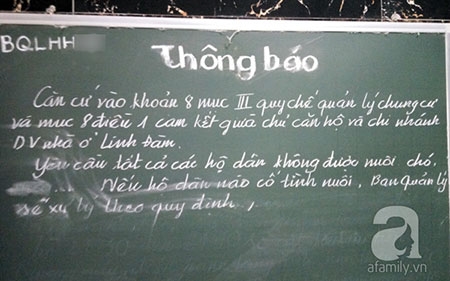 BQLHH
Thông báo
Căn cứ vào khoản 8 mục III quy chế quản lý chung cư
và mục 8 điều 1 cam kết giữa chủ căn hộ và chi nhánh
DV nhà ở Linh Đàm.
Yêu cầu tất cả các hộ dân không được nuôi chó.
Nếu hộ dân nào cố tình nuôi, Ban quản lý
sẽ xử lý theo quy định,
a
afamily.vn